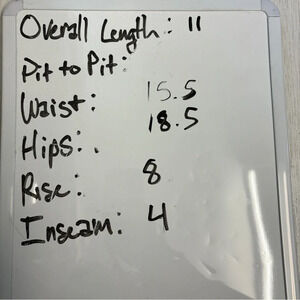 Overall Length: 11
Pit to Pit:
Waist: 15.5
Hips: 18.5
Rise: 8
Inseam: 4